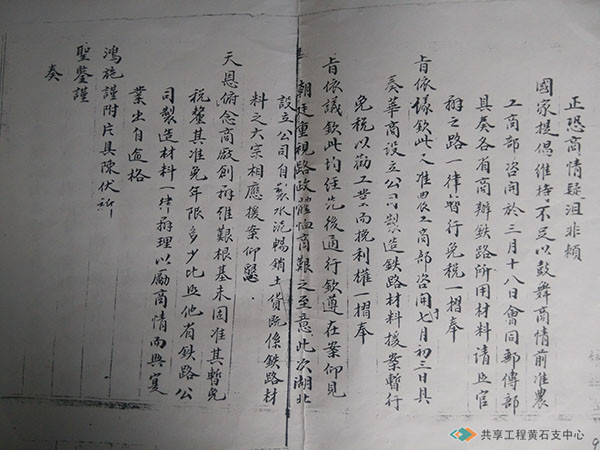 正恐商情疑沮非賴
國家提倡維持不足以鼓舞商情前准農
工商部咨開於三月十八日會同郵傳部
具奏各省商辦鐵路所用材料請照官
辦之路一律暫行免稅一摺奉
旨依議欽此又准農工商部咨開七月初三日具
奏華商設立公司製造鐵路材料援案暫行
免稅以勸工業而挽利權一摺奉
旨依議欽此均經先後通行欽遵在案仰見
朝廷重視路政體恤商艱之至意此次湖北
設立公司自製水泥暢銷土貨既係鐵路材
料之大宗相應援案仰懇
天恩俯念商廠創辦維艱根基未固准其暫免
稅釐其准免年限多少比照他省鐵路公
司製造材料一律辦理以勵商情而興實
業出自逾格
鴻施謹附片具陳伏祈
聖鑒謹
奏
共享工程黄石支中心
9